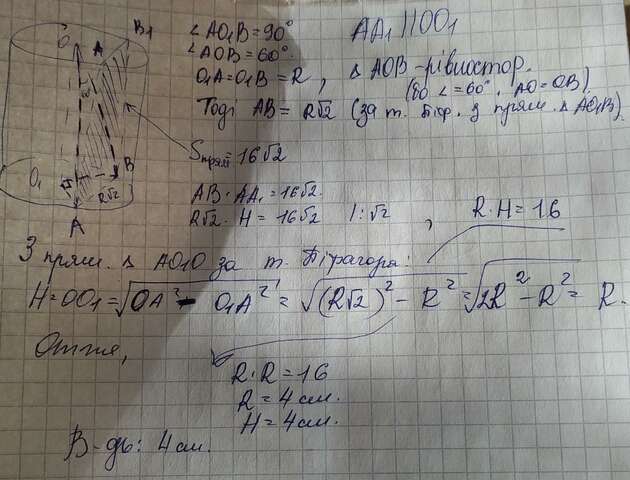 ∠AO₁B = 90° AA₁ || OO₁
∠AOB = 60°.
O₁A = O₁B = R, ∆ AOB – рівностор.
(бо ∠ = 60°, AO = OB).
Тоді AB = R√2 (за т. Піф. з прям. ∆ AO₁B).
O A B₁
O₁ B
R√2
A
Sпрям = 16√2
AB · AA₁ = 16√2
R√2 · H = 16√2 | : √2 , R · H = 16
З прям. ∆ AO₁O за т. Піфагора:
H = OO₁ = √OA² - O₁A² = √(R√2)² - R² = √2R² - R² = R.
Отже,
R · R = 16
R = 4 см.
H = 4 см.
В-дь: 4 см.